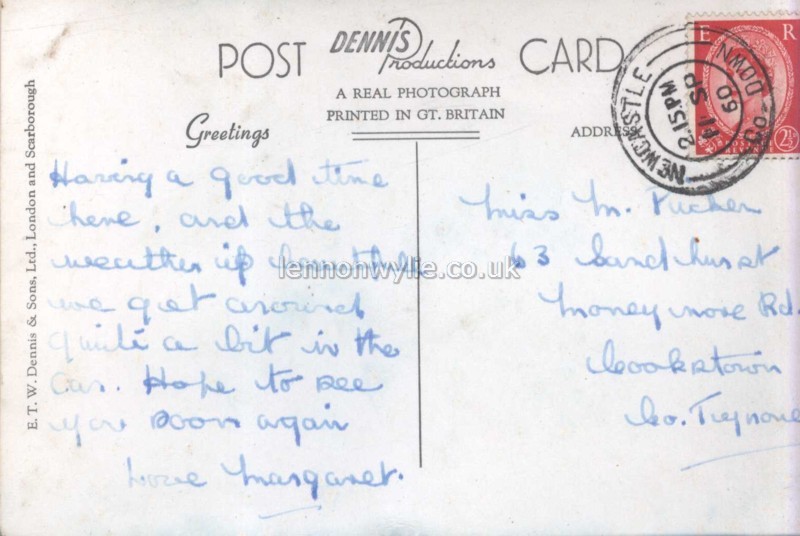 POST DENNIS Productions CARD
A REAL PHOTOGRAPH
PRINTED IN GT. BRITAIN
Greetings
ADDRESS
E R
2½D
NEWCASTLE
2.15 PM
11 SP
60
CO. DOWN
E. T. W. Dennis & Sons, Ltd., London and Scarborough
Having a good time
here, and the
weather is beautiful
we get around
quite a bit in the
Car. Hope to see
you soon again
Love Margaret.
Miss M.
63 Sandhurst
Moneymore Rd.
Cookstown
Co. Tyrone
lennonwylie.co.uk